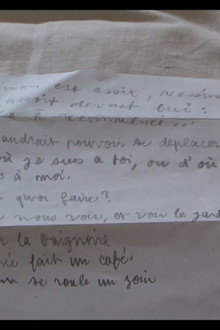 est assis,
assoit devant lui :
à recommencé...
audrait pouvoir se déplacer
où je suis a toi, ou d'où
s à moi.
quoi faire?
nous voir, et voir le jard
la baignoire
fait un café
se roule un join